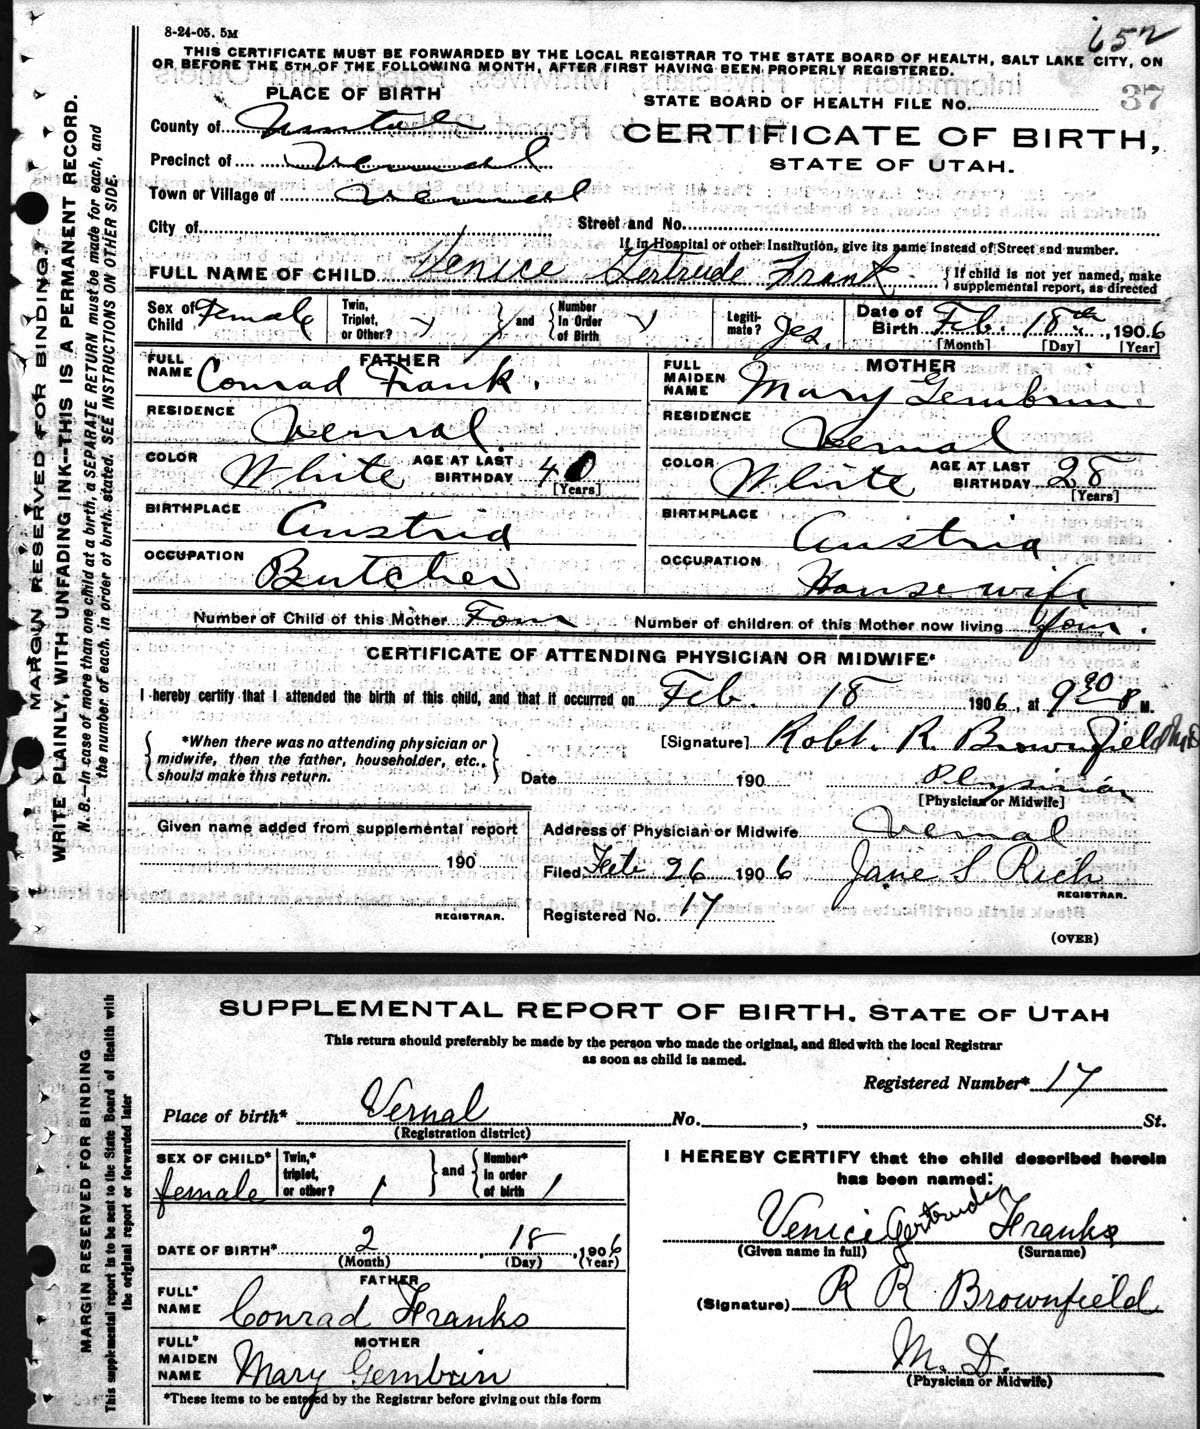 8-24-05. 5M
652
THIS CERTIFICATE MUST BE FORWARDED BY THE LOCAL REGISTRAR TO THE STATE BOARD OF HEALTH, SALT LAKE CITY, ON
OR BEFORE THE 5TH OF THE FOLLOWING MONTH, AFTER FIRST HAVING BEEN PROPERLY REGISTERED.
PLACE OF BIRTH
STATE BOARD OF HEALTH FILE No. 37
County of Uintah
CERTIFICATE OF BIRTH,
Precinct of Vernal
STATE OF UTAH.
Town or Village of Vernal
City of Street and No.
If in Hospital or other Institution, give its name instead of Street and number.
FULL NAME OF CHILD Venice Gertrude Frank { If child is not yet named, make
supplemental report, as directed
Sex of Child Female Twin, Triplet, or Other? } and { Number In Order of Birth Legitimate? Yes. Date of Birth Feb. 18th, 1906
[Month] [Day] [Year]
FATHER
FULL NAME Conrad Frank.
RESIDENCE Vernal.
COLOR White AGE AT LAST BIRTHDAY 40 [Years]
BIRTHPLACE Austria
OCCUPATION Butcher
MOTHER
FULL MAIDEN NAME Mary Gembrin
RESIDENCE Vernal
COLOR White AGE AT LAST BIRTHDAY 28 [Years]
BIRTHPLACE Austria
OCCUPATION House wife
Number of Child of this Mother Four Number of children of this Mother now living four.
CERTIFICATE OF ATTENDING PHYSICIAN OR MIDWIFE*
I hereby certify that I attended the birth of this child, and that it occurred on Feb. 18 1906, at 9 30 M.
{ *When there was no attending physician or
midwife, then the father, householder, etc.,
should make this return. }
[Signature] Robt. R. Brownfield
Date 190 Physician
[Physician or Midwife]
Given name added from supplemental report
190
REGISTRAR.
Address of Physician or Midwife Vernal
Filed Feb 26 1906 Jane S Rich
REGISTRAR.
Registered No. 17
(OVER)
MARGIN RESERVED FOR BINDING.
WRITE PLAINLY, WITH UNFADING INK--THIS IS A PERMANENT RECORD.
N. B.--In case of more than one child at a birth, a SEPARATE RETURN must be made for each, and
the number of each, in order of birth, stated. SEE INSTRUCTIONS ON OTHER SIDE.
SUPPLEMENTAL REPORT OF BIRTH. STATE OF UTAH
This return should preferably be made by the person who made the original, and filed with the local Registrar
as soon as child is named.
Registered Number* 17
Place of birth* Vernal No. , St.
(Registration district)
SEX OF CHILD* female Twin,* triplet, or other? 1 } and { Number* in order of birth 1
DATE OF BIRTH* 2, 18, 1906
(Month) (Day) (Year)
FATHER
FULL* NAME Conrad Franks
MOTHER
FULL* MAIDEN NAME Mary Gembrin
*These items to be entered by the Registrar before giving out this form
I HEREBY CERTIFY that the child described herein
has been named:
Venice Gertrude Franks
(Given name in full) (Surname)
(Signature) R R Brownfield
M. D.
(Physician or Midwife)
MARGIN RESERVED FOR BINDING
This supplemental report is to be sent to the State Board of Health with
the original report or forwarded later